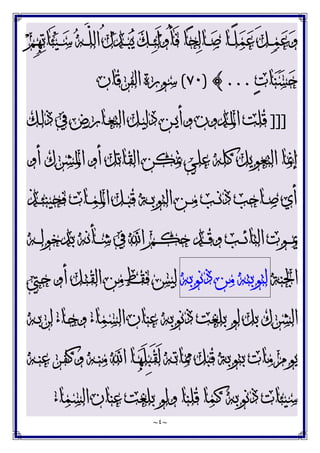 وَعَمِلَ عَمَلًا صَالِحًا فَأُولَٰئِكَ يُبَدِّلُ اللَّهُ سَيِّئَاتِهِمْ
حَسَنَاتٍ . . . ﴾ (٧٠) سورة الفرقان
[[[ قلت المدون وأين دليل التعارض في ذلك
إنما التعويل كله علي تمكن القاتل أو المشرك أو
أي صاحب ذنب من التوبة قبل الممات فحينئذ
يموت التائب وقد حكم الله في شأنه بدخوله
الجنة لتوبته من ذنوبه ليس فقط من القتل أو حتي
الشرك بل لو بلغت ذنوبه عنان السماء وجاء لربه
يوم مات بتوبة قبل مماته لقَبِلَهَا الله منه وكفر عنه
سيئات ذنوبه كما قلنا ولو بلغت عنان السماء
~ 4 ~